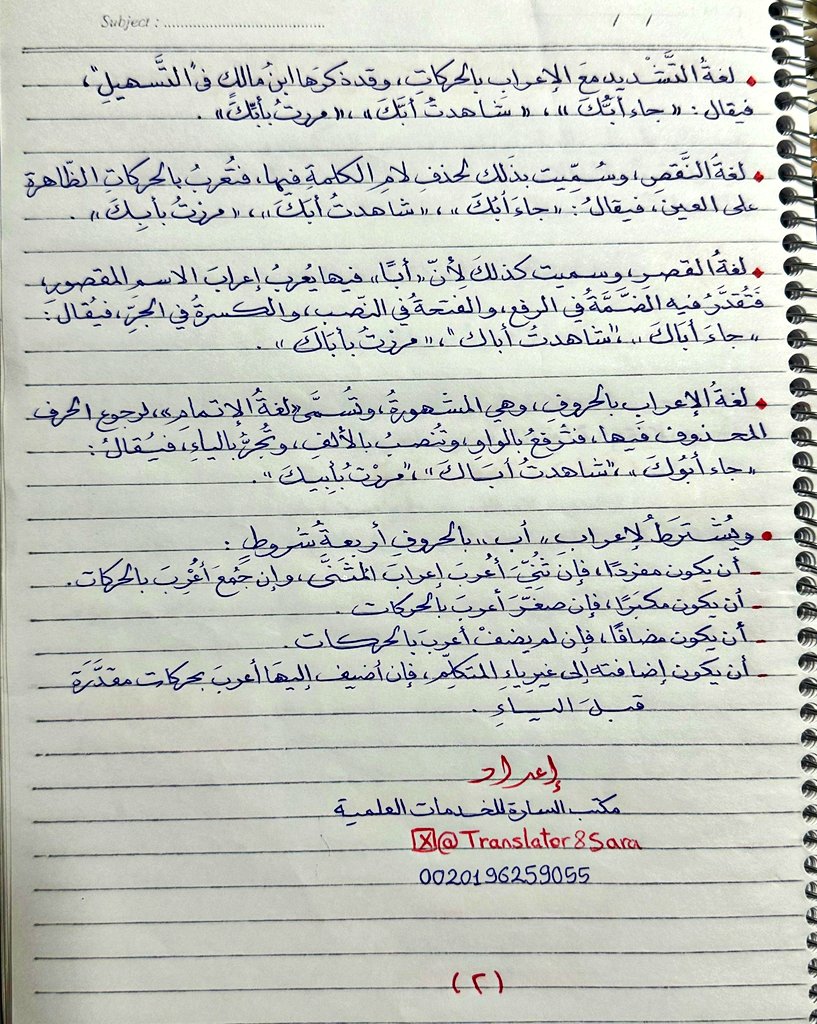 Subject : ........................................ / /
• لغةُ التَّشْديدِ معَ الإعرابِ بالحركاتِ، وقد ذكرَها ابنُ مالكٍ في "التَّسهيلِ"،
فيقال: «جاء أبُّكَ»، «شاهدتُ أبَّكَ»، «مررتُ بأبِّكَ».
• لغةُ النَّقصِ، وسُمِّيت بذَلك لحذف لامِ الكلمةِ فيها، فتُعربُ بالحركاتِ الظّاهرة
على العين، فيقالُ: «جاءَ أبُكَ»، «شاهدتُ أبَكَ»، «مررتُ بأبِكَ».
• لغةُ القصرِ، وسميت كذلكَ لِأنّ «أبًا» فيها يُعربُ إعرابَ الاسمِ المقصورِ،
فَتُقدَّرُ فيه الضَّمَّةُ في الرفعِ، والفتحةُ في النّصبِ، والكسرةُ في الجَرِّ، فيُقال:
«جاءَ أباكَ»، "شاهدتُ أباك"، «مررتُ بأباكَ».
• لغةُ الإعرابِ بالحروفِ، وهي المشهورةُ، وتُسمَّى «لغةُ الإتمامِ»، لرجوعِ الحرف
المحذوف فيها، فتُرفعُ بالواوِ، وتُنصبُ بالألفِ، وتُجرُّ بالياءِ، فيُقالُ:
«جاء أبُوكَ»، "شاهدتُ أباكَ"، "مررْتُ بأبِيكَ".
• ويُشْترَطُ لإعرابِ «أب» بالحروفِ أربعةُ شُروطٍ:
- أن يكون مفردًا، فإن ثُنِّيَ أُعربَ إعرابَ المُثنَّى، وإن جُمعَ أُعْرِبَ بالحركات.
- أن يكون مكبَّرًا، فإن صغَّرَ أعربَ بالحركات.
- أن يكون مضافًا، فإن لم يضفْ أعربَ بالحركات.
- أن يكون إضافته إلى غيرِ ياءِ المتكلِّم، فإن أضيف إليهَا أعربَ بحركات مقدَّرَة
قبلَ الياءِ.
إعداد
مكتب السارة للخدمات العلمية
X @Translator8Sara
0020196259055
(٢)